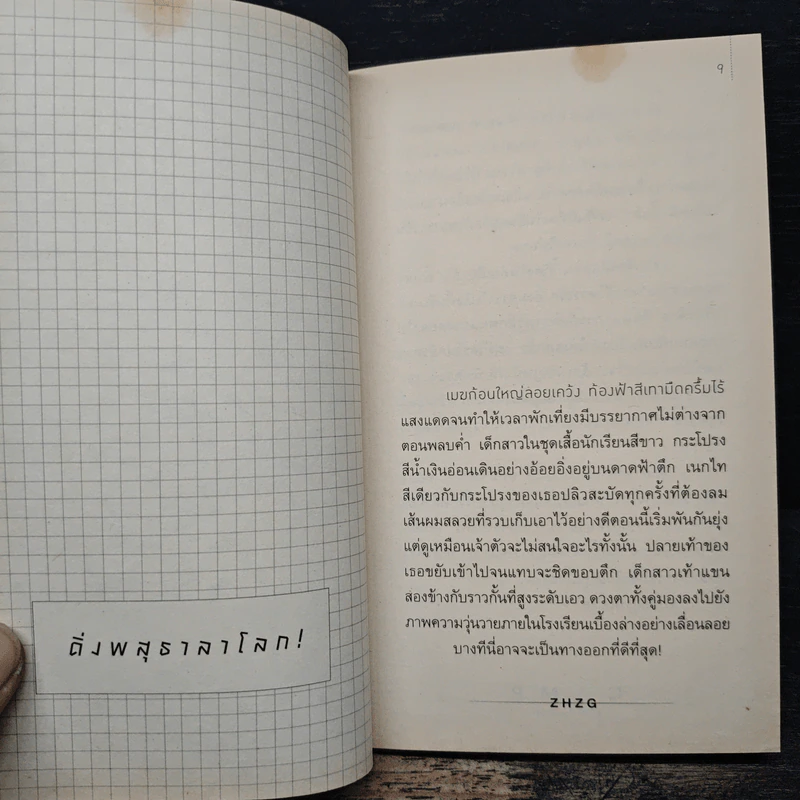 ดิ่งพสุธาลาโลก!
๑
เมฆก้อนใหญ่ลอยเคว้ง ท้องฟ้าสีเทามืดครึ้มไร้
แสงแดดจนทำให้เวลาพักเที่ยงมีบรรยากาศไม่ต่างจาก
ตอนพลบค่ำ เด็กสาวในชุดเสื้อนักเรียนสีขาว กระโปรง
สีน้ำเงินอ่อนเดินอย่างอ้อยอิ่งอยู่บนดาดฟ้าตึก เนกไท
สีเดียวกับกระโปรงของเธอปลิวสะบัดทุกครั้งที่ต้องลม
เส้นผมสลวยที่รวบเก็บเอาไว้อย่างดีตอนนี้เริ่มพันกันยุ่ง
แต่ดูเหมือนเจ้าตัวจะไม่สนใจอะไรทั้งนั้น ปลายเท้าของ
เธอขยับเข้าไปจนแทบจะชิดขอบตึก เด็กสาวเท้าแขน
สองข้างกับราวกั้นที่สูงระดับเอว ดวงตาทั้งคู่มองลงไปยัง
ภาพความวุ่นวายภายในโรงเรียนเบื้องล่างอย่างเลื่อนลอย
บางทีนี่อาจจะเป็นทางออกที่ดีที่สุด!
ZHZG